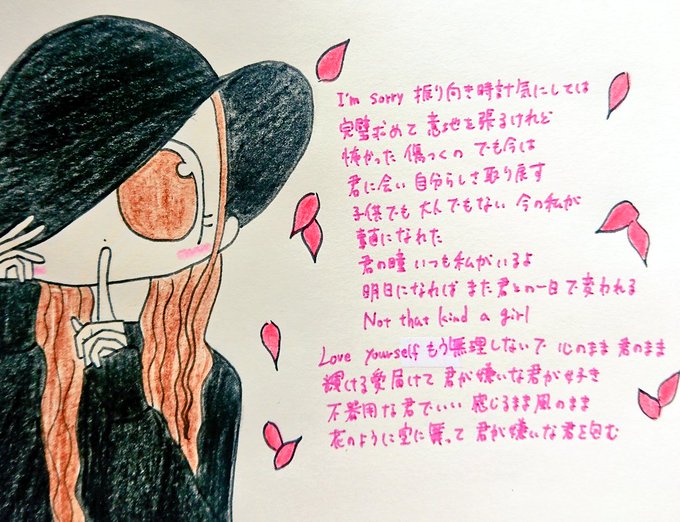 I'm sorry 振り向き時計気にしては
完璧求めて 意地を張るけれど
怖かった 傷つくの でも今は
君に会い 自分らしさ取り戻す
子供でも 大人でもない 今の私が
素直になれた
君の瞳 いつも私がいるよ
明日になれば また君との一日で変われる
Not that kind a girl
Love yourself もう無理しないで 心のまま 君のまま
輝ける愛届けて 君が嫌いな君が好き
不器用な君でいい 感じるまま風のまま
花のように空に舞って 君が嫌いな君を包む